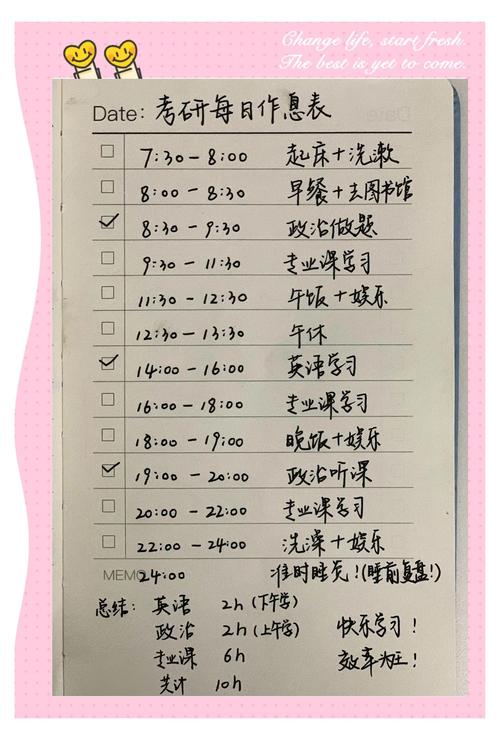 Change life, start fresh.
The best is yet to come.
Date: 考研每日作息表
7:30 - 8:00 起床+洗漱
8:00 - 8:30 早餐+去图书馆
8:30 - 9:30 政治做题
9:30 - 11:30 专业课学习
11:30 - 12:30 午饭+娱乐
12:30 - 13:30 午休
14:00 - 16:00 英语学习
16:00 - 18:00 专业课学习
18:00 - 19:00 晚饭+娱乐
19:00 - 20:00 政治听课
20:00 - 22:00 专业课学习
22:00 - 24:00 洗澡+娱乐
MEMO 24:00 准时睡觉!(睡前复盘!)
总结: 英语 2h (下午学)
政治 2h (上午学) 快乐学习!
专业课 6h 效率为王!
共计 10h